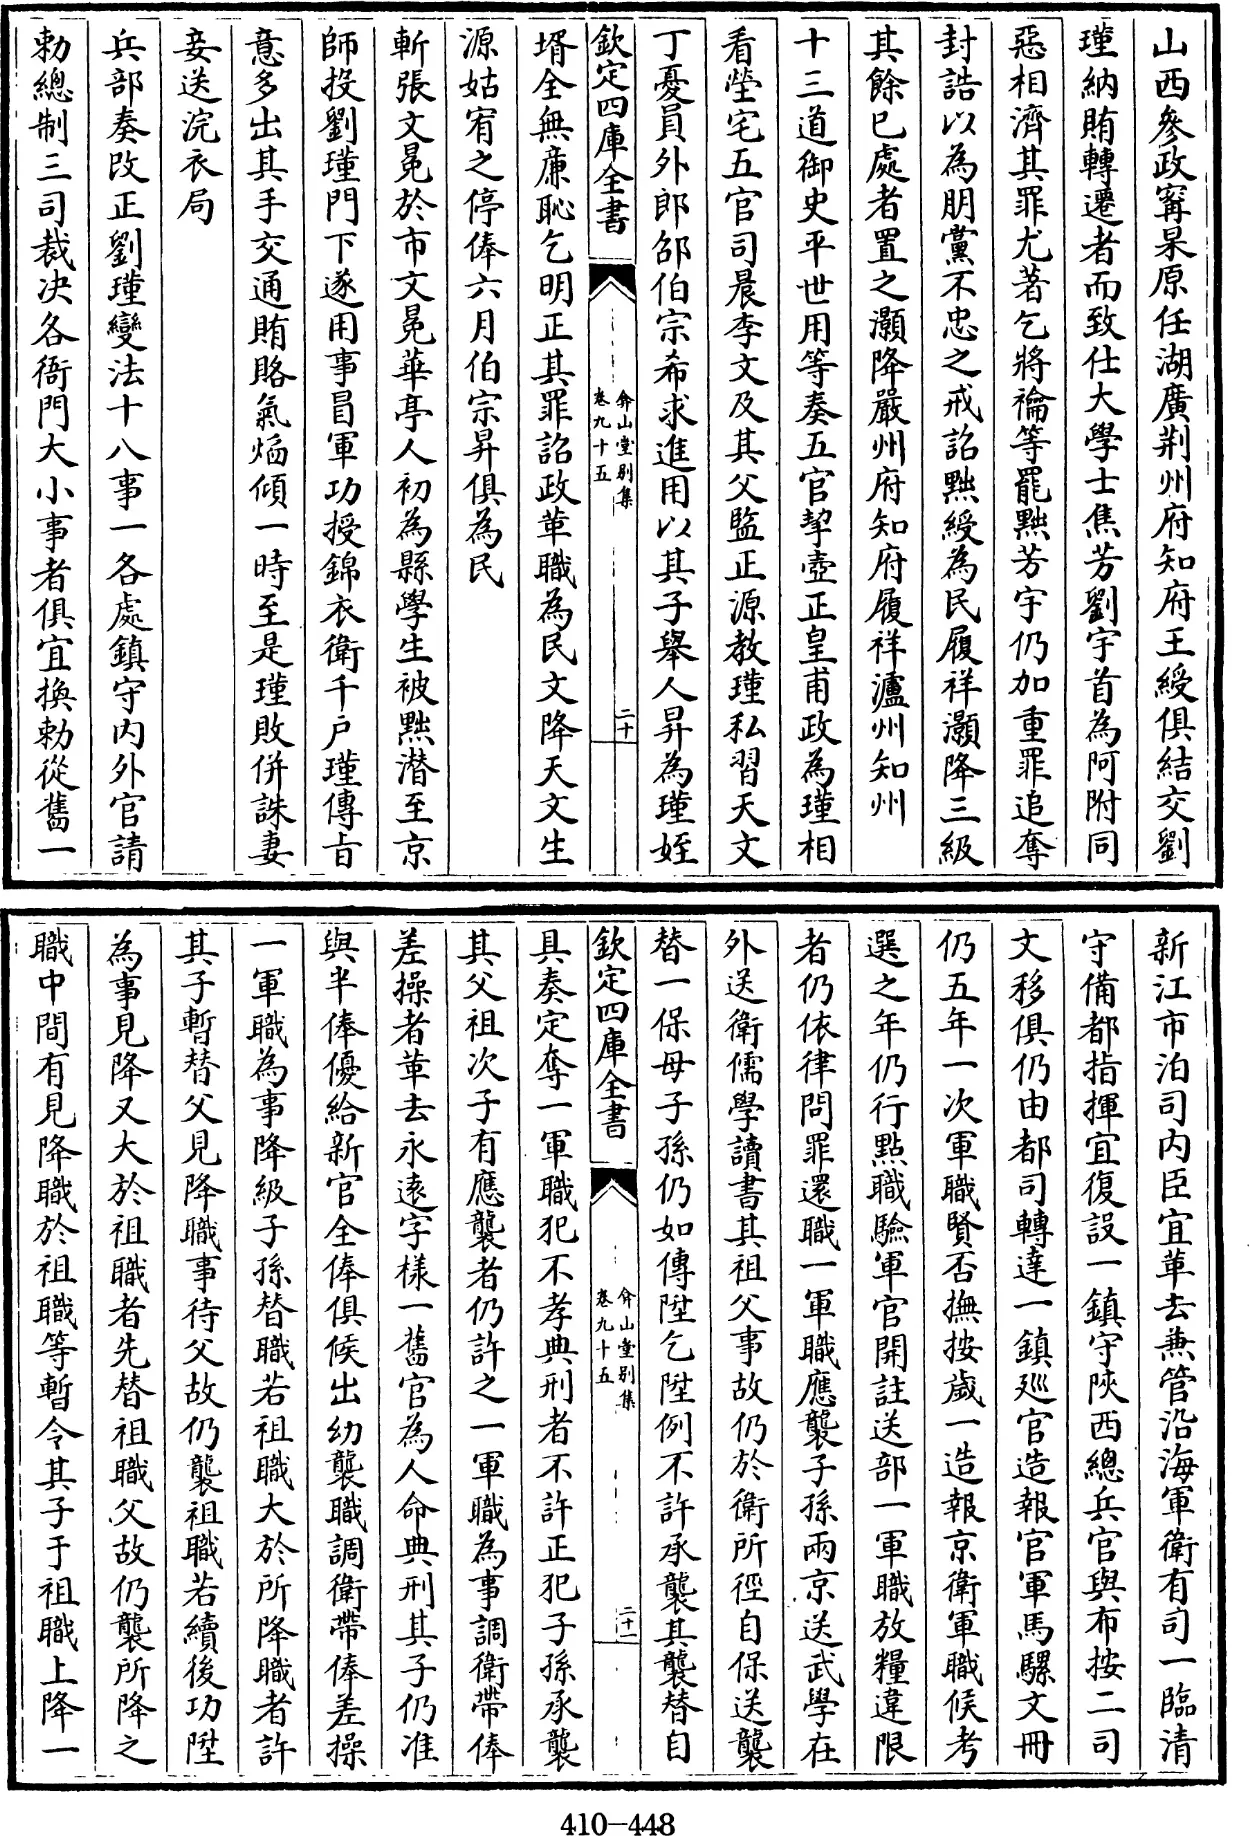 山西參政甯杲原任湖廣荆州府知府王綬俱結交劉
瑾納賄轉遷者而致仕大學士焦芳劉宇首為阿附同
惡相濟其罪尤著乞將禬等罷黜芳宇仍加重罪追奪
封誥以為朋黨不忠之戒詔黜綬為民履祥灝降三級
其餘已處者置之灝降嚴州府知府履祥瀘州知州
十三道御史平世用等奏五官挈壺正皇甫政為瑾相
看塋宅五官司晨李文及其父監正源教瑾私習天文
丁憂員外郎邵伯宗希求進用以其子舉人昇為瑾姪
欽定四庫全書
弇山堂别集
卷九十五
二十
壻全無廉恥乞明正其罪詔政革職為民文降天文生
源姑宥之停俸六月伯宗昇俱為民
斬張文冕於市文冕華亭人初為縣學生被黜潜至京
師投劉瑾門下遂用事冒軍功授錦衣衛千户瑾傳旨
意多出其手交通賄賂氣焰傾一時至是瑾敗併誅妻
妾送浣衣局
兵部奏改正劉瑾變法十八事一各處鎮守内外官請
勅總制三司裁决各衙門大小事者俱宜換勅從舊一
新江市泊司内臣宜革去兼管沿海軍衛有司一臨清
守備都指揮宜復設一鎮守陜西總兵官與布按二司
文移俱仍由都司轉達一鎮廵官造報官軍馬騾文冊
仍五年一次軍職賢否撫按歲一造報京衛軍職候考
選之年仍行點職驗軍官開註送部一軍職放糧違限
者仍依律問罪還職一軍職應襲子孫兩京送武學在
外送衛儒學讀書其祖父事故仍於衛所徑自保送襲
替一保母子孫仍如傳陞乞陞例不許承襲其襲替自
欽定四庫全書
弇山堂别集
卷九十五
二十一
具奏定奪一軍職犯不孝典刑者不許正犯子孫承襲
其父祖次子有應襲者仍許之一軍職為事調衛帶俸
差操者革去永遠字樣一舊官為人命典刑其子仍准
與半俸優給新官全俸俱候出幼襲職調衛帶俸差操
一軍職為事降級子孫替職若祖職大於所降職者許
其子暫替父見降職事待父故仍襲祖職若續後功陞
為事見降又大於祖職者先替祖職父故仍襲所降之
職中間有見降職於祖職等暫令其子于祖職上降一
410-448